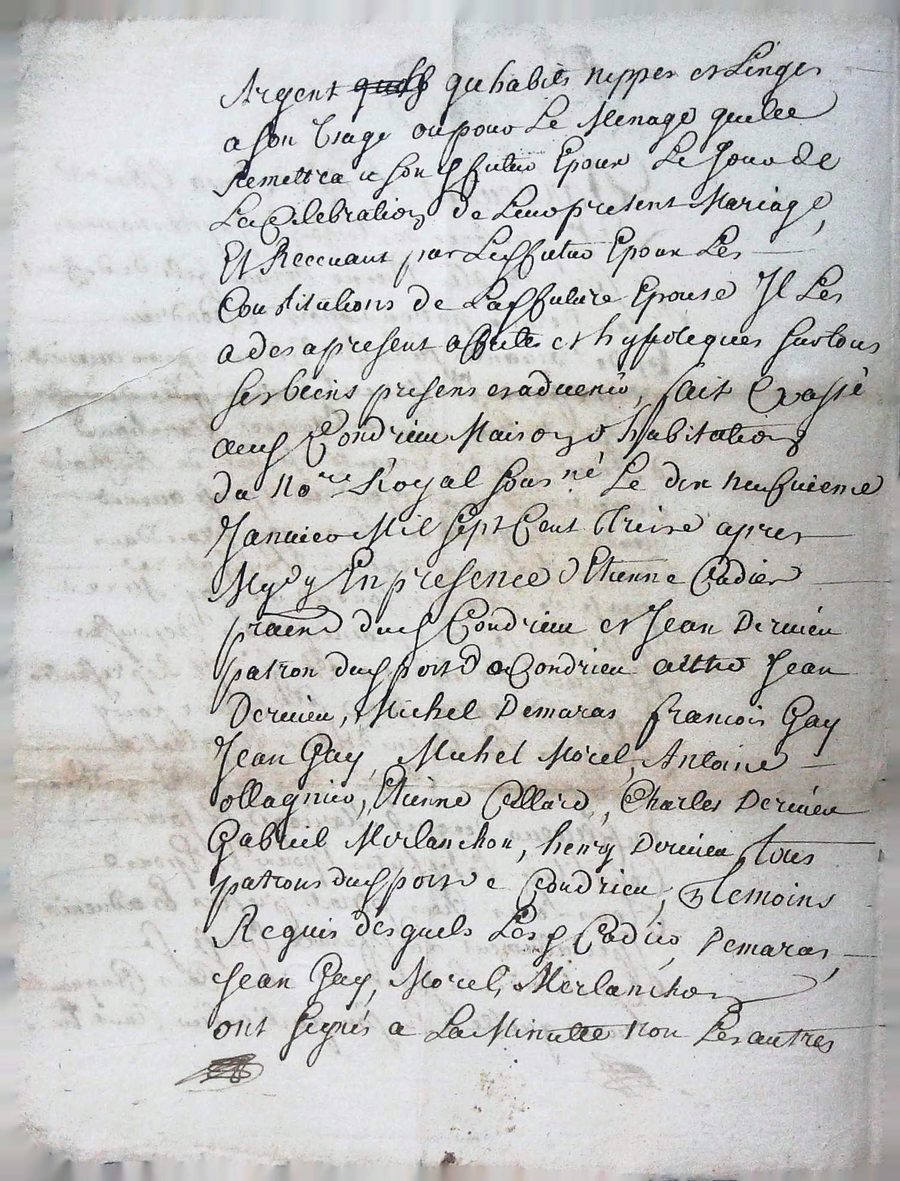 Argent qu'habits nippes et Linges
a son Usage ou pour Le Menage quelle
Remettra a son sf futur Epoux Le Jour de
La Celebration de Leur present Mariage,
Et Recevant par Led futur Epoux Les
Constitutions de Lad future Epouse Il Les
a des apresent assutes et hypoteques sur tous
ses biens presens et advenir, fait & passé
aud Condrieu Maison d'habitation
du No.re Royal sous né Le dix neufvieme
Janvier Mil Sept Cent Treise apres
Mydy En presence d'Etienne Cadier
dud Condrieu et Jean Dervieu
patron dud port de Condrieu autre Jean
Dervieu, Michel Demaras francois Gay
Jean Gay, Michel Morel, Antoine
ollagnier, Etienne Collard, Charles Dervieu
Gabriel Merlanchon, henry Dervieu tous
patrons dud port de Condrieu, Temoins
Requis desquels Lesd Cadier, Demaras,
Jean Gay, Morel, Merlanchon
ont signés a La Minutte non Les autres